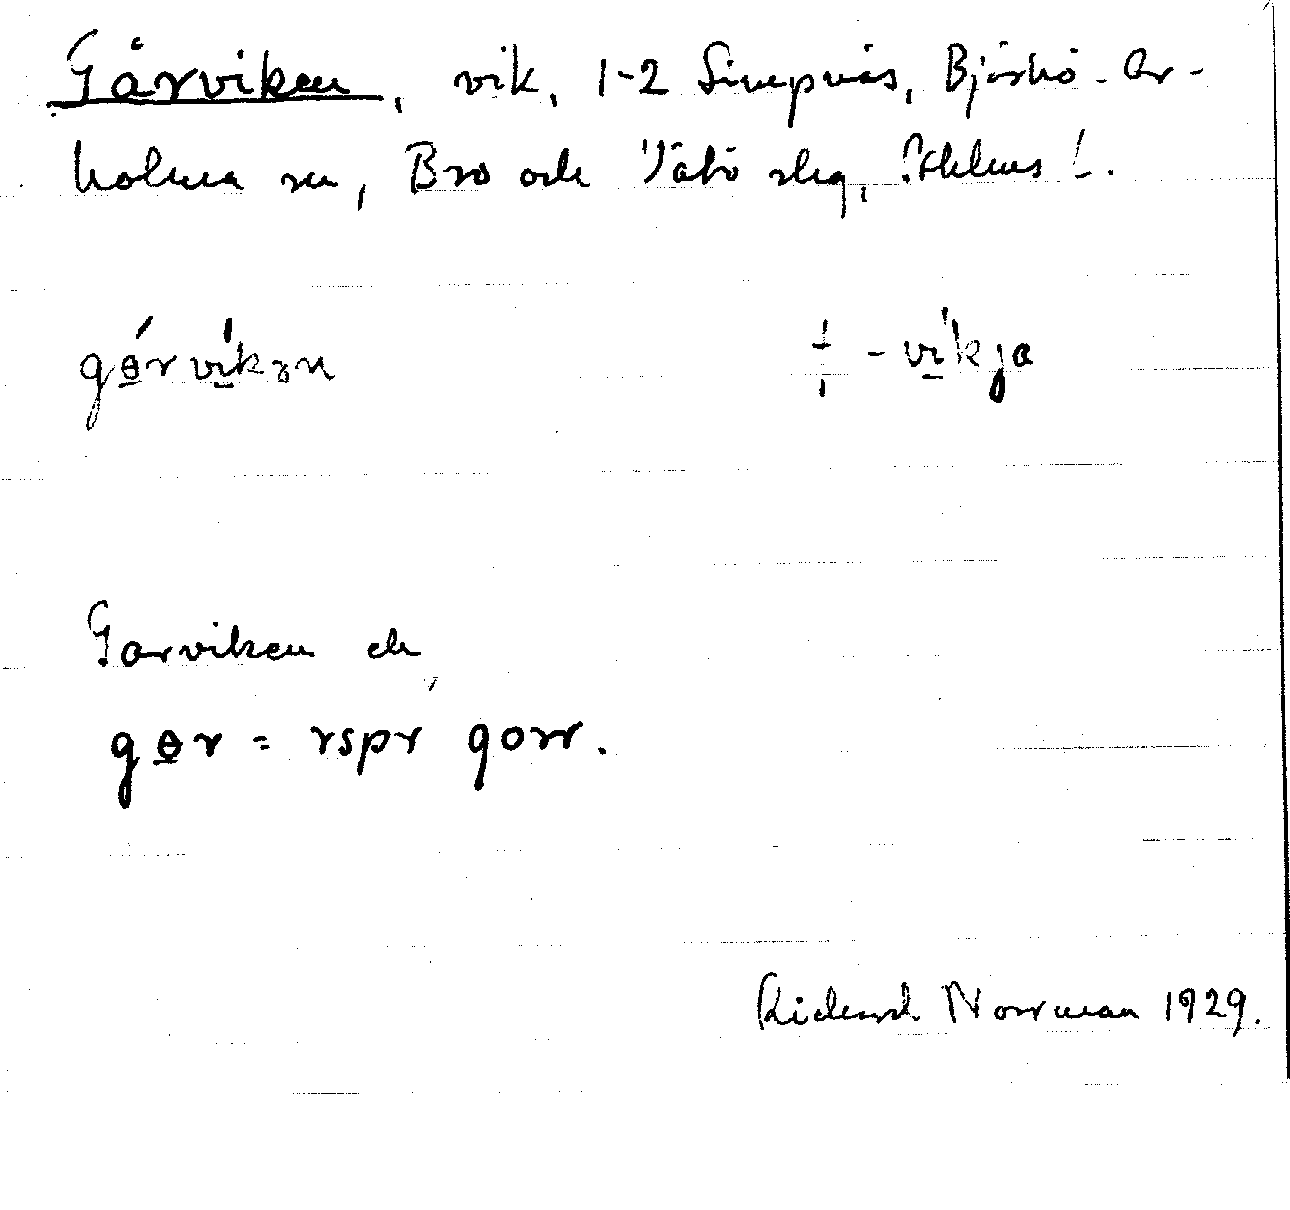 Gårviken, vik, 1-2 Simpnäs, Björkö-Ar-
holma sn, Bro och Vätö skg, Sthlms l.
gɵrvikən ‡ -vikja
Garviken ek
gɵr = rspr gorr.
Rickard Norrman 1929.